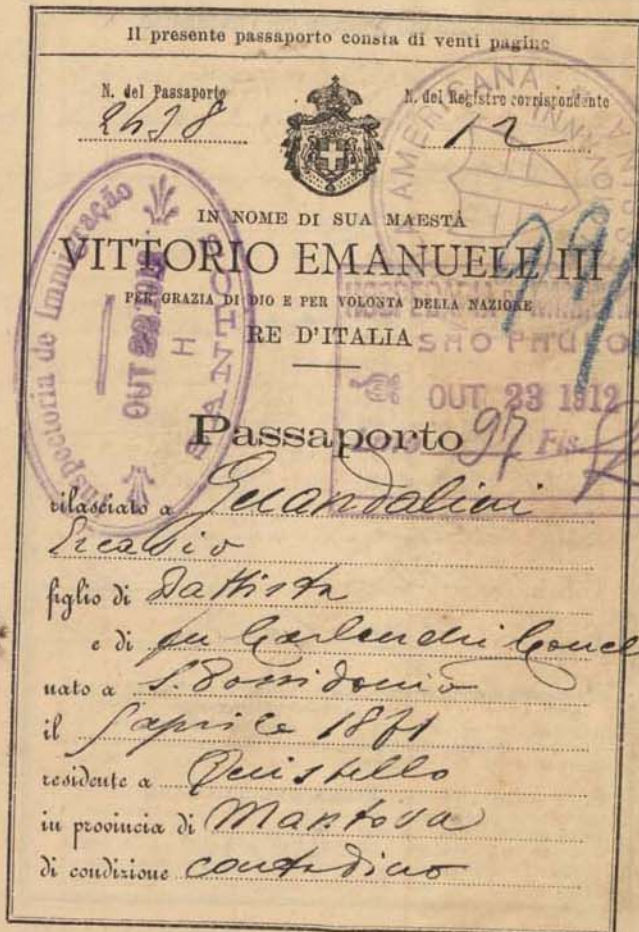 Il presente passaporto consta di venti pagine
N. del Passaporto
N. del Registro corrispondente
12
IN NOME DI SUA MAESTÀ
VITTORIO EMANUELE III
PER GRAZIA DI DIO E PER VOLONTÀ DELLA NAZIONE
RE D'ITALIA
Inspectoria de Immigração
SANTOS
H
OUT
AMERICANA
SÃO PAULO
OUT 23 1912
97 Fls
Passaporto
rilasciato a Guandalini
figlio di Battista
e di fu
nato a S. Possidonio
il aprile 1871
residente a Quistello
in provincia di Mantova
di condizione contadino